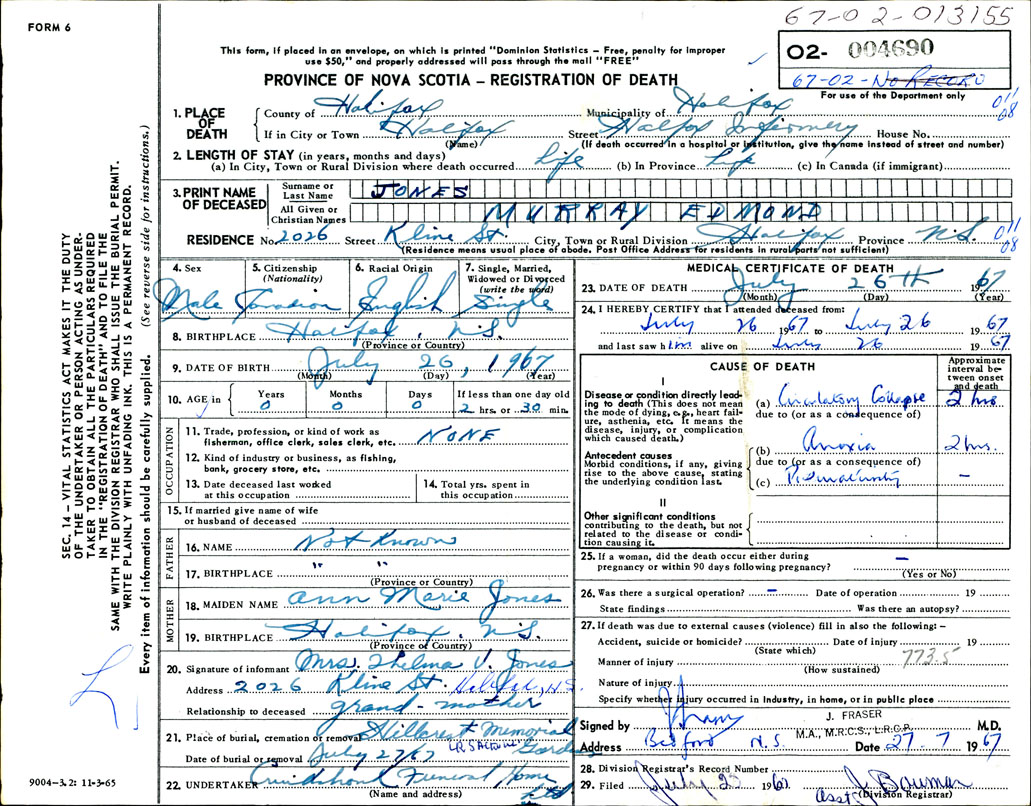 67-02-013155
FORM 6
This form, if placed in an envelope, on which is printed "Dominion Statistics – Free, penalty for improper
use $50," and properly addressed will pass through the mail "FREE"
02- 004690
PROVINCE OF NOVA SCOTIA – REGISTRATION OF DEATH
67-02-No RECORD
For use of the Department only
011
08
1. PLACE OF DEATH
County of Halifax Municipality of Halifax
If in City or Town Halifax Street Halifax Infirmary House No.
(Name) (If death occurred in a hospital or institution, give the name instead of street and number)
2. LENGTH OF STAY (in years, months and days)
(a) In City, Town or Rural Division where death occurred Life (b) In Province Life (c) In Canada (if immigrant)
3. PRINT NAME OF DECEASED
Surname or Last Name JONES
All Given or Christian Names MURRAY EDMOND
RESIDENCE No. 2026 Street Kline St. City, Town or Rural Division Halifax Province N.S.
011
08
(Residence means usual place of abode. Post Office Address for residents in rural parts not sufficient)
4. Sex
Male
5. Citizenship
(Nationality)
6. Racial Origin
English
7. Single, Married,
Widowed or Divorced
(write the word)
Single
8. BIRTHPLACE Halifax, N.S.
(Province or Country)
9. DATE OF BIRTH July 26, 1967
(Month) (Day) (Year)
10. AGE in
Years Months Days If less than one day old
0 0 0 2 hrs. or 30 min.
OCCUPATION
11. Trade, profession, or kind of work as
fisherman, office clerk, sales clerk, etc. NONE
12. Kind of industry or business, as fishing,
bank, grocery store, etc.
13. Date deceased last worked
at this occupation
14. Total yrs. spent in
this occupation
15. If married give name of wife
or husband of deceased
FATHER
16. NAME Not Known
17. BIRTHPLACE " "
(Province or Country)
MOTHER
18. MAIDEN NAME Ann Marie Jones
19. BIRTHPLACE Halifax, N.S.
(Province or Country)
20. Signature of informant Mrs. Thelma V. Jones
Address 2026 Kline St. Halifax, N.S.
Relationship to deceased grand-mother
21. Place of burial, cremation or removal Hillcrest Memorial
Gardens
Date of burial or removal July 27/67
22. UNDERTAKER Cruikshank Funeral Home
Ltd
(Name and address)
MEDICAL CERTIFICATE OF DEATH
23. DATE OF DEATH July 26TH 1967
(Month) (Day) (Year)
24. I HEREBY CERTIFY that I attended deceased from:
July 26 1967 to July 26 1967
and last saw him alive on July 26 1967
CAUSE OF DEATH
Approximate
interval be-
tween onset
and death
I
Disease or condition directly lead-
ing to death (This does not mean
the mode of dying, e.g., heart fail-
ure, asthenia, etc. It means the
disease, injury, or complication
which caused death.)
(a) Circulatory Collapse 2 hrs
due to (or as a consequence of)
Antecedent causes
Morbid conditions, if any, giving
rise to the above cause, stating
the underlying condition last.
(b) Anoxia 2 hrs.
due to (or as a consequence of)
(c) Prematurity –
II
Other significant conditions
contributing to the death, but not
related to the disease or condi-
tion causing it.
25. If a woman, did the death occur either during
pregnancy or within 90 days following pregnancy? –
(Yes or No)
26. Was there a surgical operation? – Date of operation 19
State findings Was there an autopsy?
27. If death was due to external causes (violence) fill in also the following: –
Accident, suicide or homicide? Date of injury 19
(State which)
773.5
Manner of injury
(How sustained)
Nature of injury
Specify whether injury occurred in Industry, in home, or in public place
Signed by J. Fraser
J. FRASER
M.A., M.R.C.S., L.R.C.P. M.D.
Address Bedford N.S. Date 27-7 1967
28. Division Registrar's Record Number
29. Filed July 1967
Asst. J. Bauman
(Division Registrar)
SEC. 14 – VITAL STATISTICS ACT MAKES IT THE DUTY
OF THE UNDERTAKER OR PERSON ACTING AS UNDER-
TAKER TO OBTAIN ALL THE PARTICULARS REQUIRED
IN THE "REGISTRATION OF DEATH" AND TO FILE THE
SAME WITH THE DIVISION REGISTRAR WHO SHALL ISSUE THE BURIAL PERMIT.
WRITE PLAINLY WITH UNFADING INK. THIS IS A PERMANENT RECORD.
Every item of information should be carefully supplied. (See reverse side for instructions.)
9004–3.2: 11-3-65